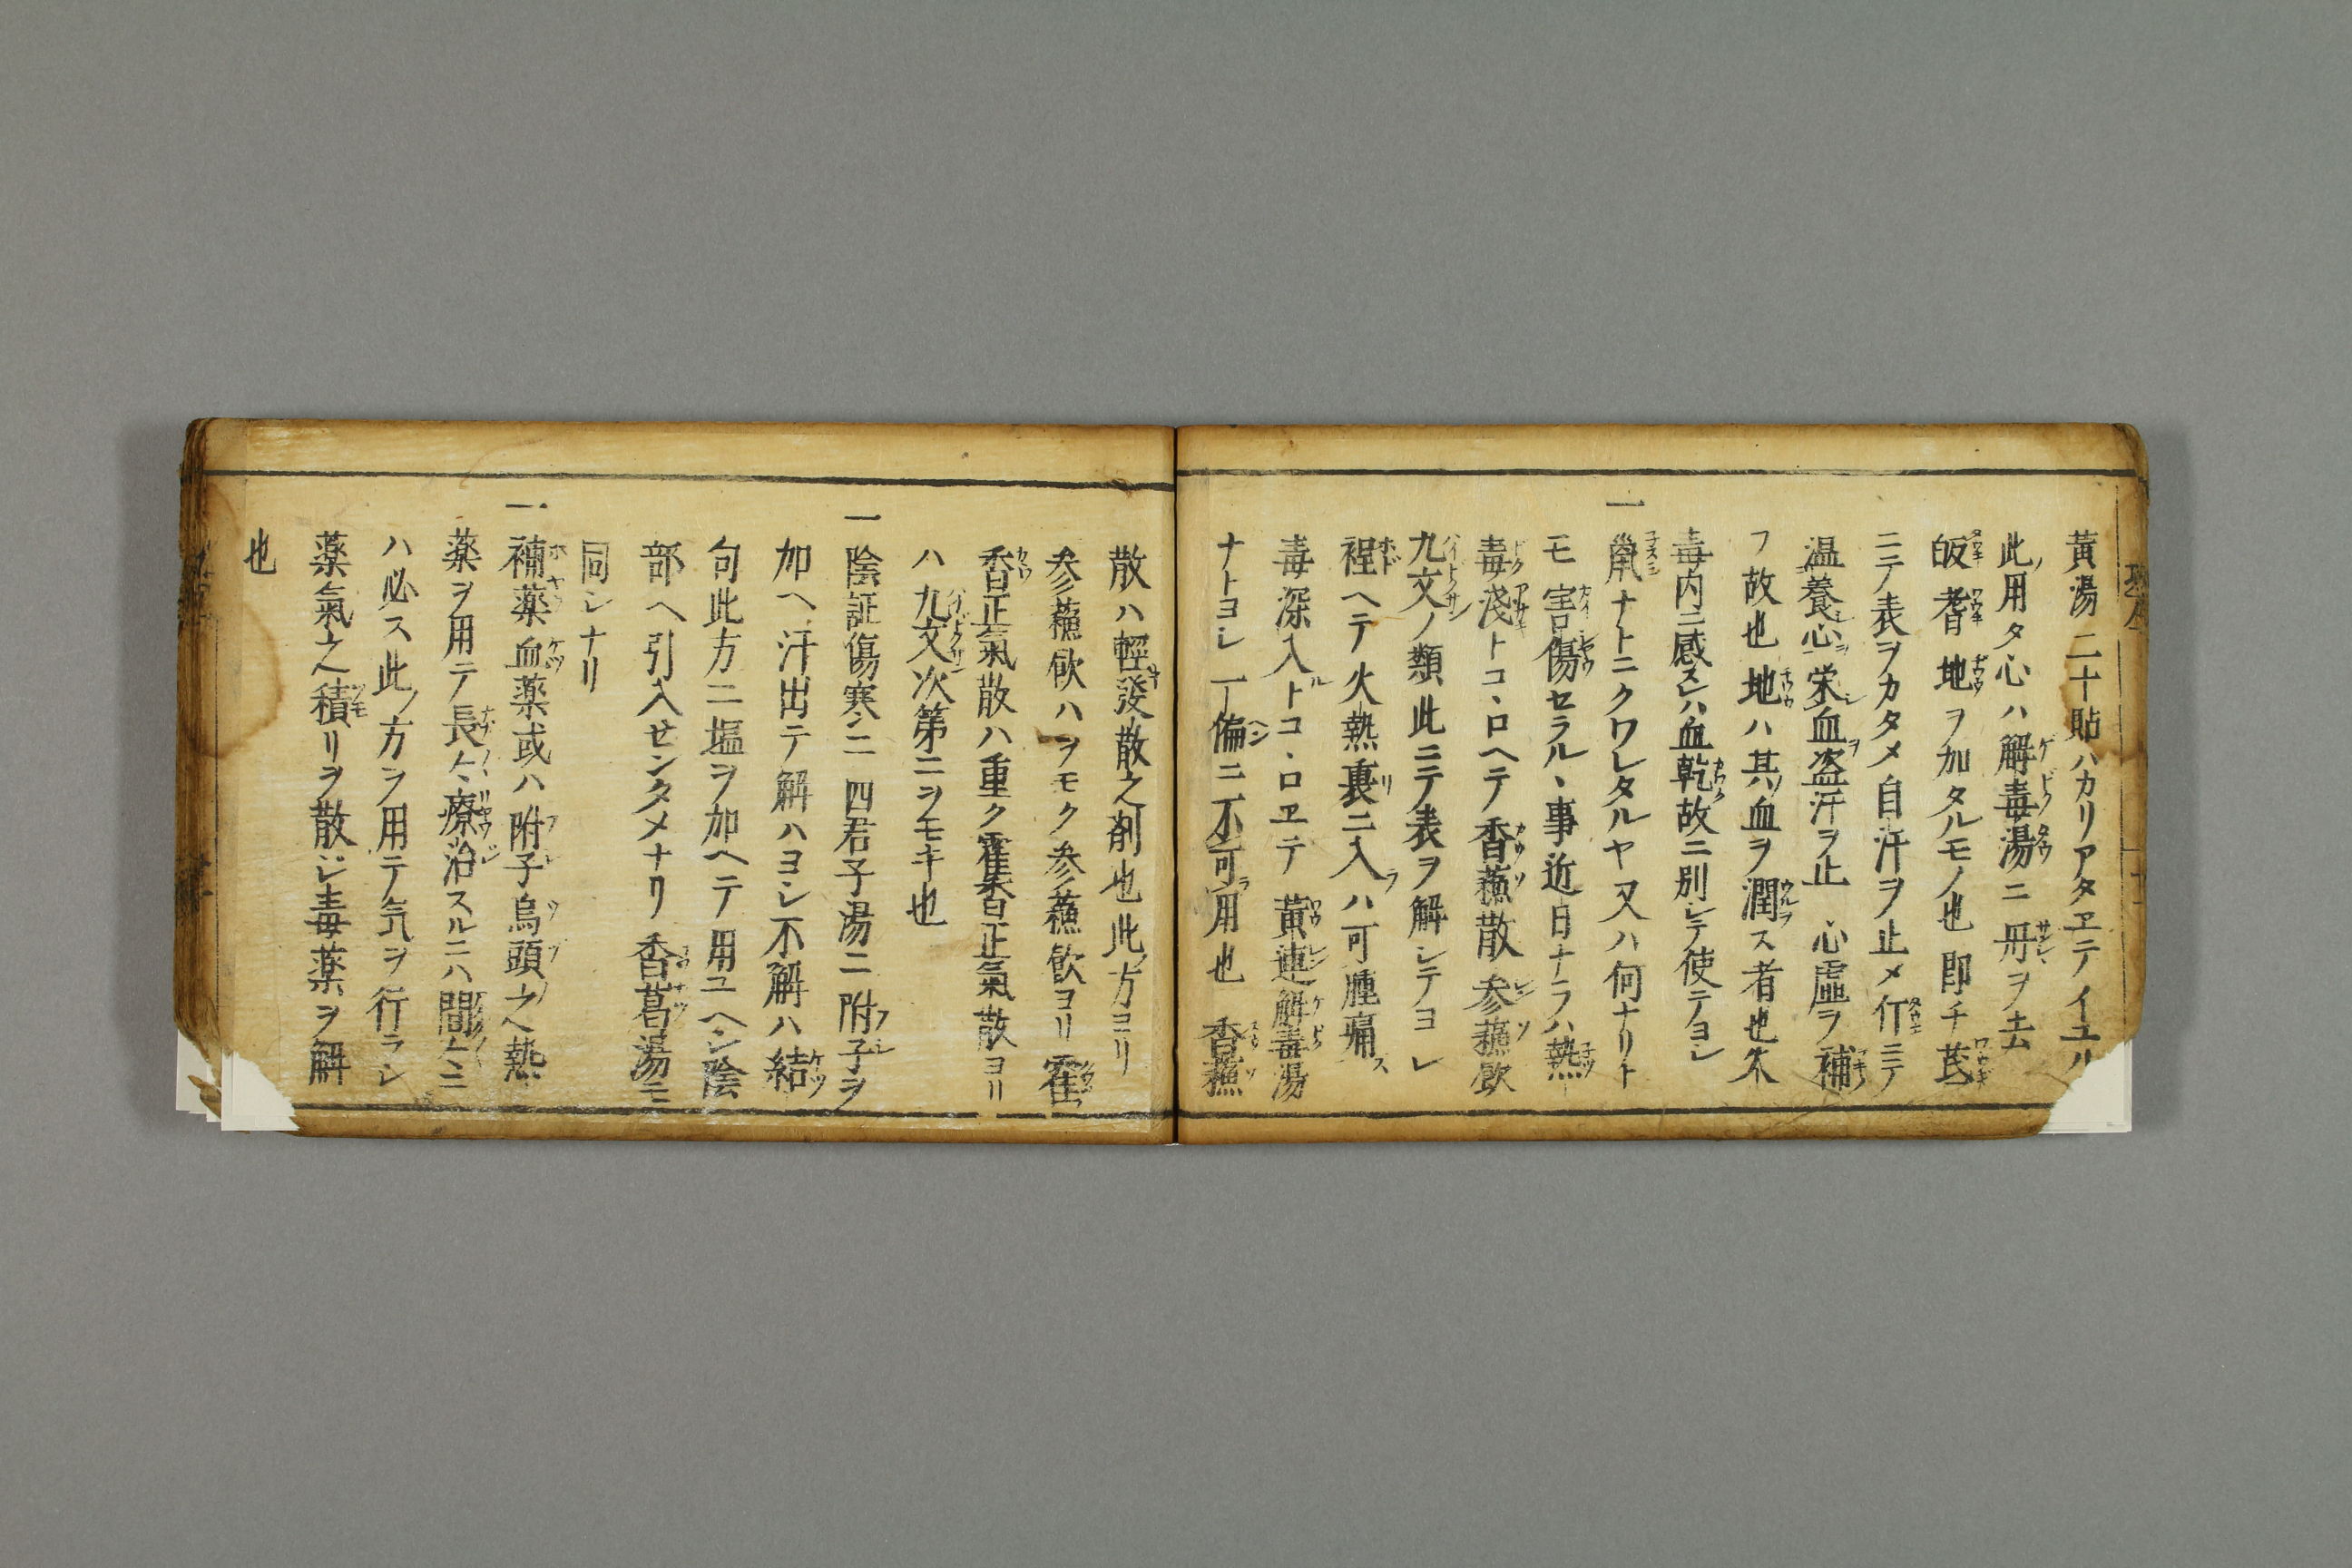 黃湯二十貼ハカリアタヱテイユル
此ノ用タ心ハ解毒湯ニ丹ヲ去
皈耆地ヲ加タルモノ也即チ芪
ニテ表ヲカタメ自汗ヲ止メ行ニテ
温養心ヲ栄血ヲ盗汗ヲ止心虚ヲ補
フ故也地ハ其ノ血ヲ潤ス者也火
毒内ニ感スレハ血乾故ニ別シテ使テヨシ
一鼡ナトニクワレタルヤ又ハ何ナリト
モ害傷セラルヽ事近日ナラハ熱
毒淺トコヽロヘテ香蘓散参蘓飲
九文ノ類此ニテ表ヲ解シテヨシ
程ヘテ火熱裏ニ入ラハ可腫痛ス
毒深入ルトコヽロヱテ黃連解毒湯
ナトヨシ一偏ニ不可ラ用也香蘓
散ハ輕キ發散之剤也此ノ方ヨリ
参蘓飲ハヲモク参蘓飲ヨリ霍
香正氣散ハ重ク霍香正氣散ヨリ
ハ九文次第ニヲモキ也
一陰証傷寒ニ四君子湯ニ附子ヲ
加ヘ汗出テ解ハヨシ不解ハ結
句此方ニ塩ヲ加ヘテ用ユヘシ陰
部ヘ引入センタメナリ香葛湯モ
同シナリ
一補薬血薬或ハ附子烏頭之熱
薬ヲ用テ長々療治スルニハ間々ニ
ハ必ス此ノ方ヲ用テ気ヲ行ラシ
薬氣之積リヲ散シ毒薬ヲ解
也